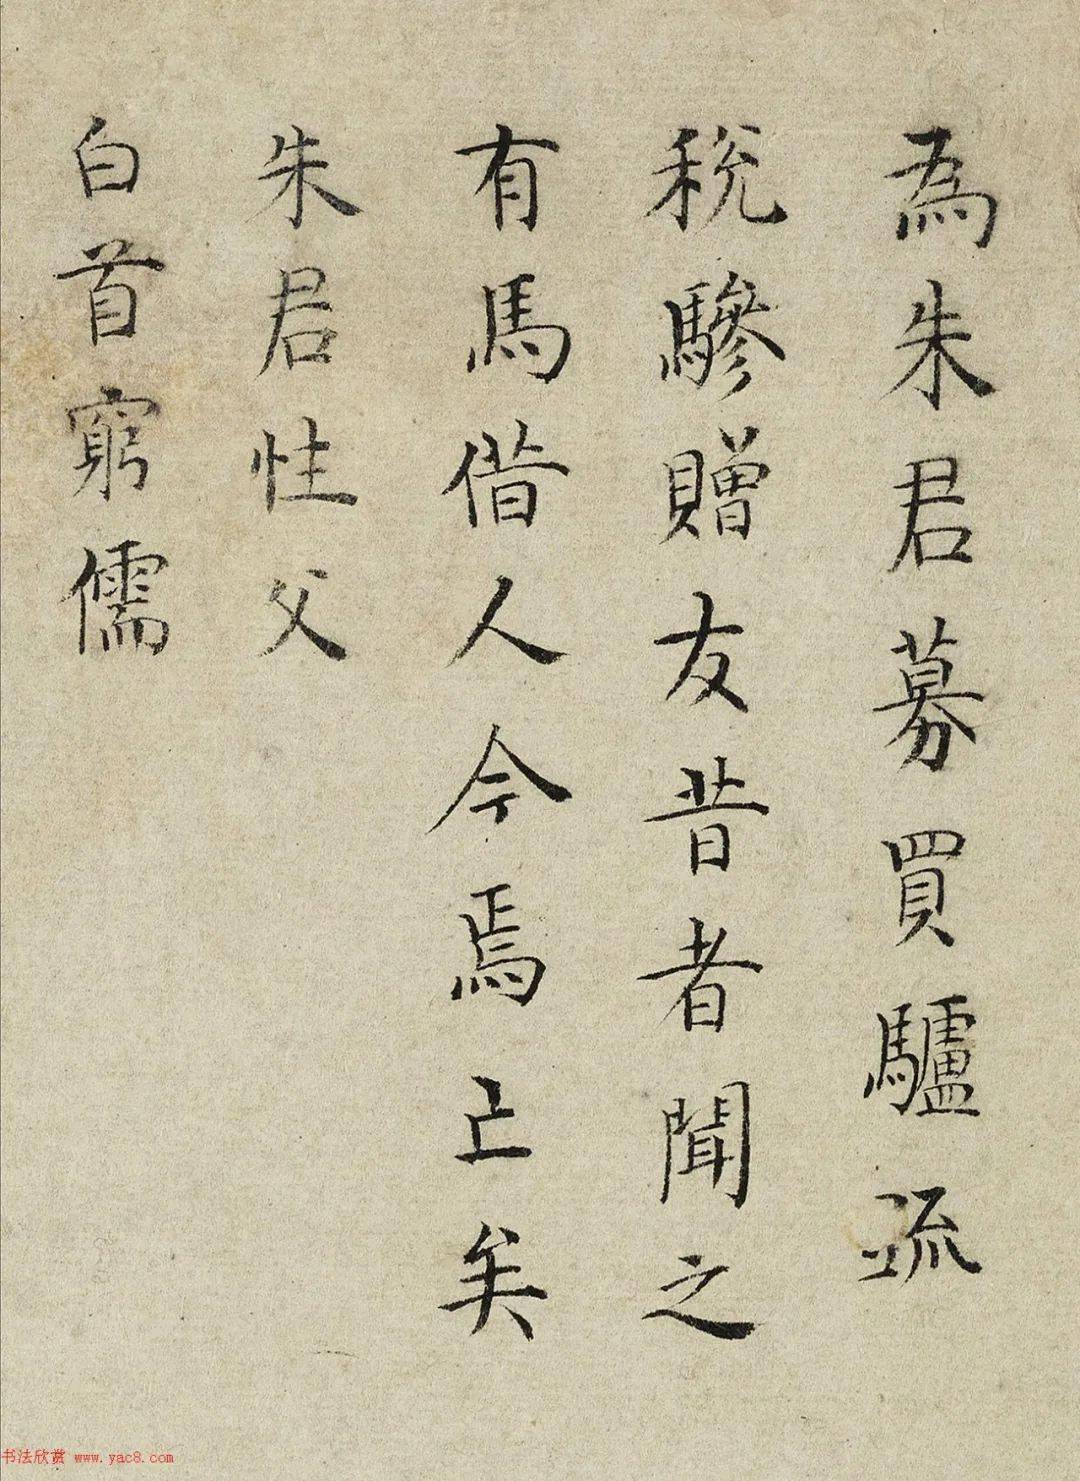 為朱君募買驢疏
税驂贈友昔者聞之
有馬借人今焉亡矣
朱君性父
白首窮儒
书法欣赏 www.yac8.com